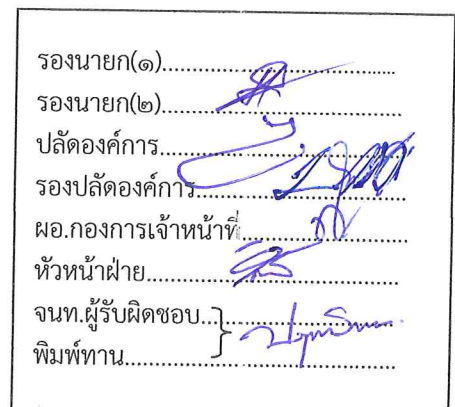 รองนายก(๑)..........................................
รองนายก(๒)..........................................
ปลัดองค์การ..........................................
รองปลัดองค์การ......................................
ผอ.กองการเจ้าหน้าที่...............................
หัวหน้าฝ่าย...........................................
จนท.ผู้รับผิดชอบ....................................
พิมพ์ทาน..............................................